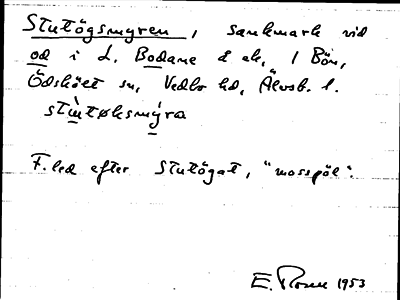 Stutögsmyren, sankmark vid
od i L. Bodane 2 ak, 1 Bön,
Ödskölt sn, Vedbo hd, Älvsb. l.
stùtøksmýra
F.led efter Stutögat, "mosspöl".
E. Rosen 1953